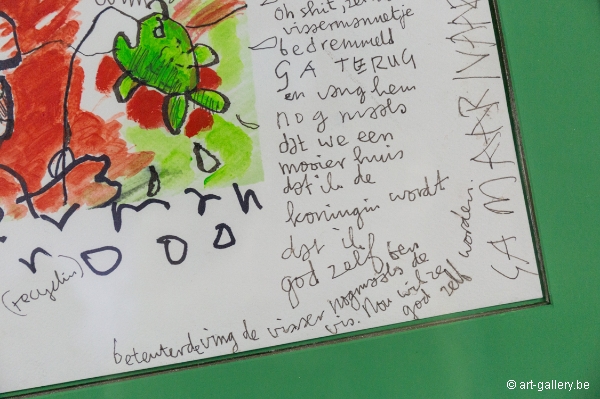 Oh shit, zei
vissermannetje
bedremmeld
GA TERUG
en vang hem
nogmaals
dat we een
mooier huis
dat ik de
koningin wordt
dat ik
god zelf ben
beteuterd ving de visser nogmaals de
vis. Nou wil ze
god zelf worden.
GA MAAR NAAR
(recyclin)
© art-gallery.be